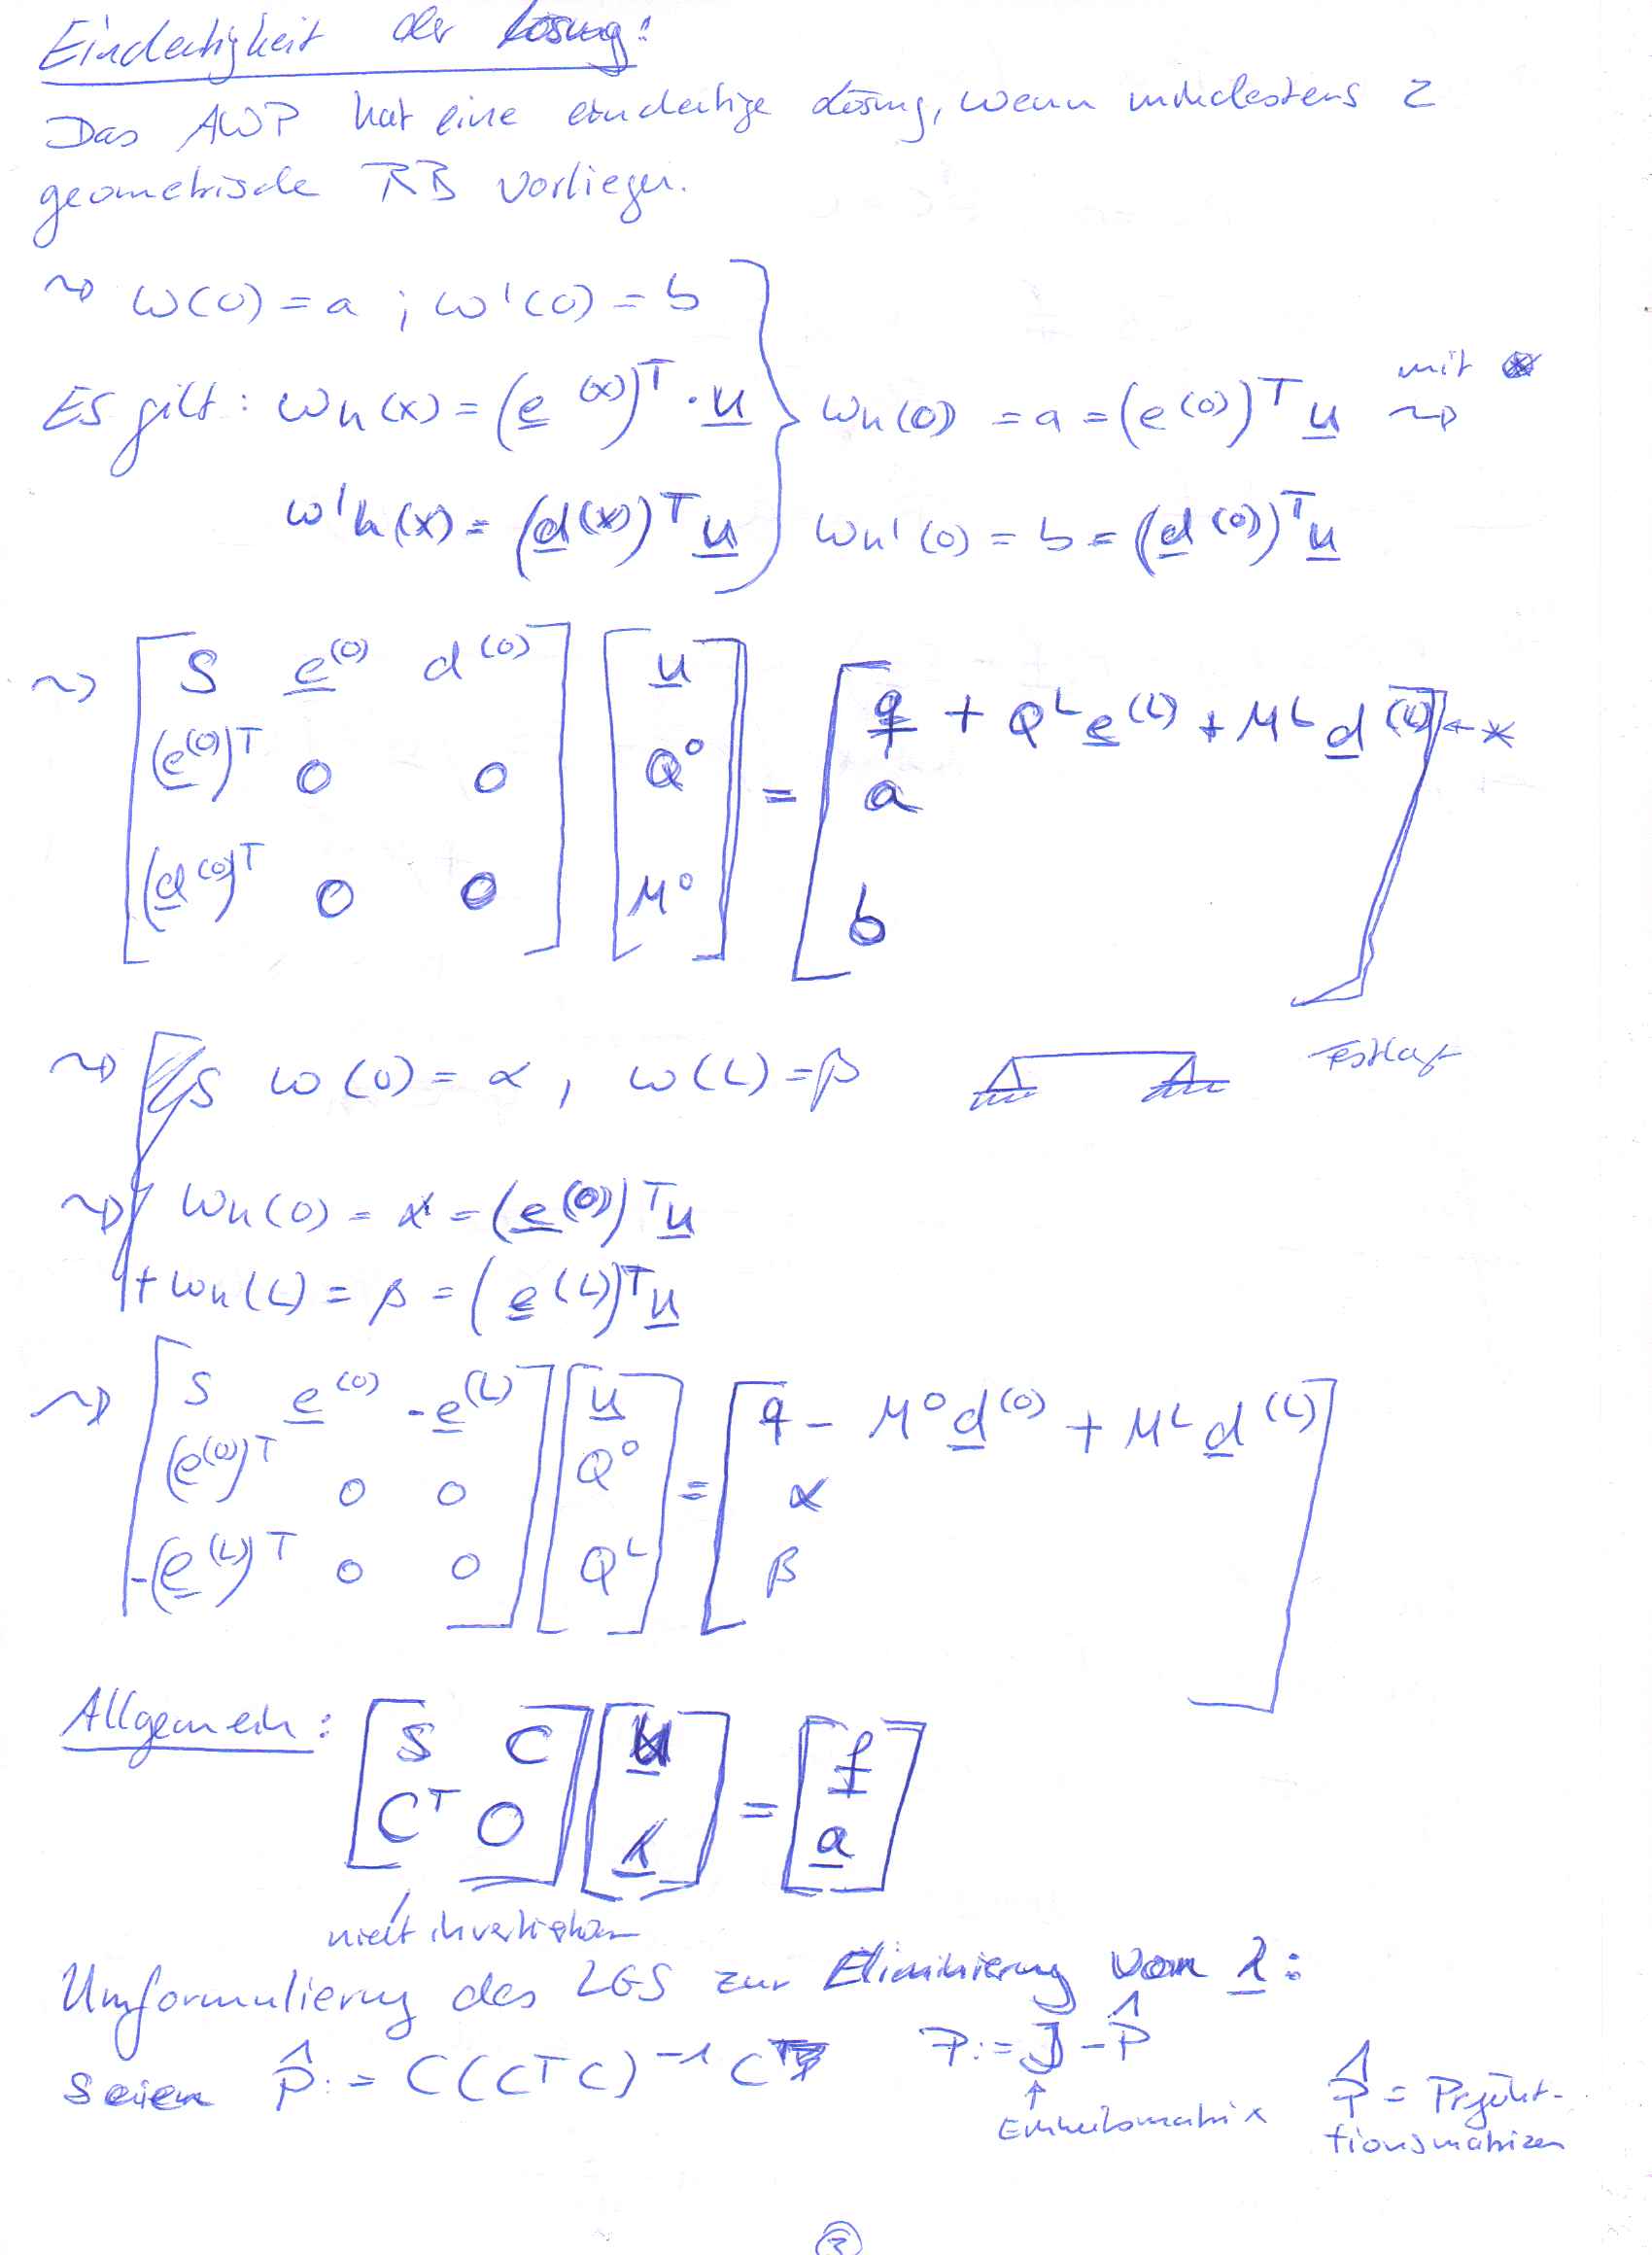 Eindeutigkeit der Lösung:
Das AWP hat eine eindeutige Lösung, wenn mindestens 2
geometrische RB vorliegen.
⇝ w(0) = a ; w'(0) = b
Es gilt: w_h(x) = (e^(x))^T · u } w_h(0) = a = (e^(0))^T u mit ⇝
w'_h(x) = (d^(x))^T u } w_h'(0) = b = (d^(0))^T u
⇝ [ S e^(0) d^(0) ] [ u ] = [ f + Q^L e^(L) + M^L d^(L) ] ← *
[ (e^(0))^T 0 0 ] [ Q^0 ] [ a ]
[ (d^(0))^T 0 0 ] [ M^0 ] [ b ]
⇝ w(0) = α , w(L) = β
⇝ w_h(0) = α = (e^(0))^T u
+ w_h(L) = β = (e^(L))^T u
⇝ [ S e^(0) -e^(L) ] [ u ] = [ q - M^0 d^(0) + M^L d^(L) ]
[ (e^(0))^T 0 0 ] [ Q^0 ] [ α ]
[ -(e^(L))^T 0 0 ] [ Q^L ] [ β ]
Allgemein: [ S C ] [ u ] = [ f ]
[ C^T 0 ] [ λ ] [ a ]
nicht invertierbar
Umformulierung des LGS zur Eliminierung von λ:
Seien P̂ := C(C^T C)^-1 C^T P := I - P̂
Einheitsmatrix P̂ = Projek-
tionsmatrizen